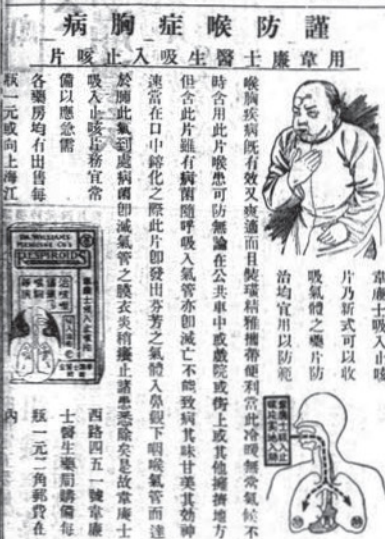 謹防喉症胸病
用韋廉士醫生吸入止咳片
韋廉士吸入止咳
片乃新式可以收
吸氣體之藥片防
治均宜用以防範
喉胸疾病既有效又爽適而且裝璜精雅攜帶便利當此冷暖無常氣候不
時含用此片喉患可防無論在公共車中或戲院或街上或其他擁擠地方
但含此片雖有病菌隨呼吸入氣管亦卽滅亡不能致病其味甘美其効神
速當在口中鎔化之際此片卽發出芬芳之氣體入鼻觀下咽喉氣管而達
於肺此氣到處病菌卽滅氣管之膜衣炎稍癢止諸患悉除矣是故韋廉士
吸入止咳片務宜常
備以應急需
各藥房均有出售每
瓶一元或向上海江
西路四五一號韋廉
士醫生藥局購備每
瓶一元二角郵費在
內
DR. WILLIAMS'
MEDICINE CO'S
RESPIROIDS